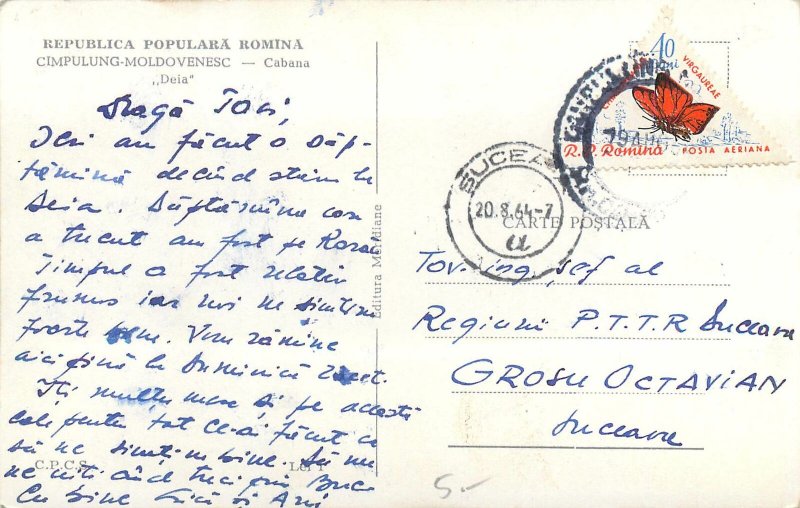 REPUBLICA POPULARĂ ROMÎNĂ
CIMPULUNG-MOLDOVENESC — Cabana
„Deia"
Dragă Tavi,
Ieri am făcut o săp-
tămînă decînd stăm la
Deia. Săptămîna care
a trecut am fost pe Rarău
Timpul a fost relativ
frumos iar noi ne simțim
foarte bine. Vom rămîne
aici pînă la Duminică
Îți mulțumesc și pe această
cale pentru tot ce-ai făcut ca
să ne simțim bine. Să nu
ne uiți cînd treci prin Buc
Cu bine și Ani
C.P.C.S. Lei 1
Editura Meridiane
40 bani
VIRGAUREAE
R.P. Romînă POSTA AERIANA
SUCEAVA
20.8.64-7
a
CARTE POȘTALĂ
Tov. ing. șef al
Regiunii P.T.T.R Suceava
GROSU OCTAVIAN
Suceava
5.-